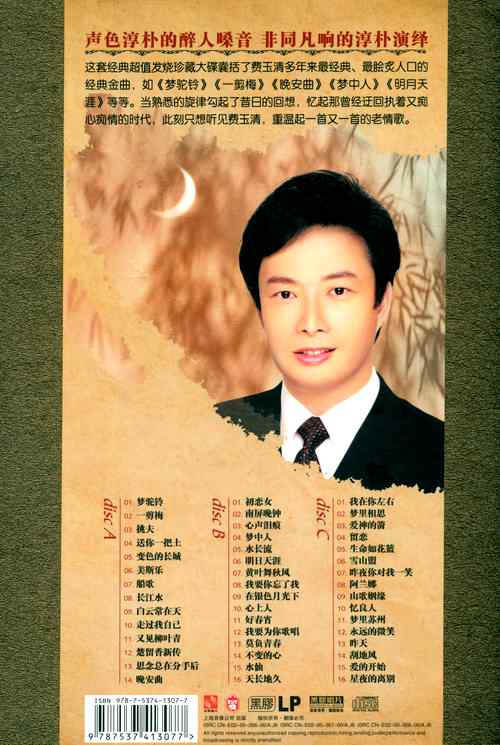 声色淳朴的醉人嗓音 非同凡响的淳朴演绎
这套经典超值发烧珍藏大碟囊括了费玉清多年来最经典、最脍炙人口的
经典金曲，如《梦驼铃》《一剪梅》《晚安曲》《梦中人》《明月天
涯》等等。当熟悉的旋律勾起了昔日的回想，忆起那曾经迂回执着又痴
心痴情的时代，此刻只想听见费玉清，重温起一首又一首的老情歌。
disc A
01. 梦驼铃
02. 一剪梅
03. 挑夫
04. 送你一把土
05. 变色的长城
06. 美斯乐
07. 船歌
08. 长江水
09. 白云常在天
10. 走过我自己
11. 又见柳叶青
12. 楚留香新传
13. 思念总在分手后
14. 晚安曲
disc B
01. 初恋女
02. 南屏晚钟
03. 心声泪痕
04. 梦中人
05. 水长流
06. 明日天涯
07. 黄叶舞秋风
08. 我要你忘了我
09. 在银色月光下
10. 心上人
11. 好春宵
12. 我要为你歌唱
13. 莫负青春
14. 不变的心
15. 水仙
16. 天长地久
disc C
01. 我在你左右
02. 梦里相思
03. 爱神的箭
04. 留恋
05. 生命如花篮
06. 雪山盟
07. 昨夜你对我一笑
08. 阿兰娜
09. 山歌姻缘
10. 忆良人
11. 梦里苏州
12. 永远的微笑
13. 昨天
14. 刮地风
15. 爱的开始
16. 星夜的离别
ISBN 978-7-5374-1307-7
9 787537 413077 >
黑胶 LP
All rights of the producer and of the owner of the work reproduced reserved